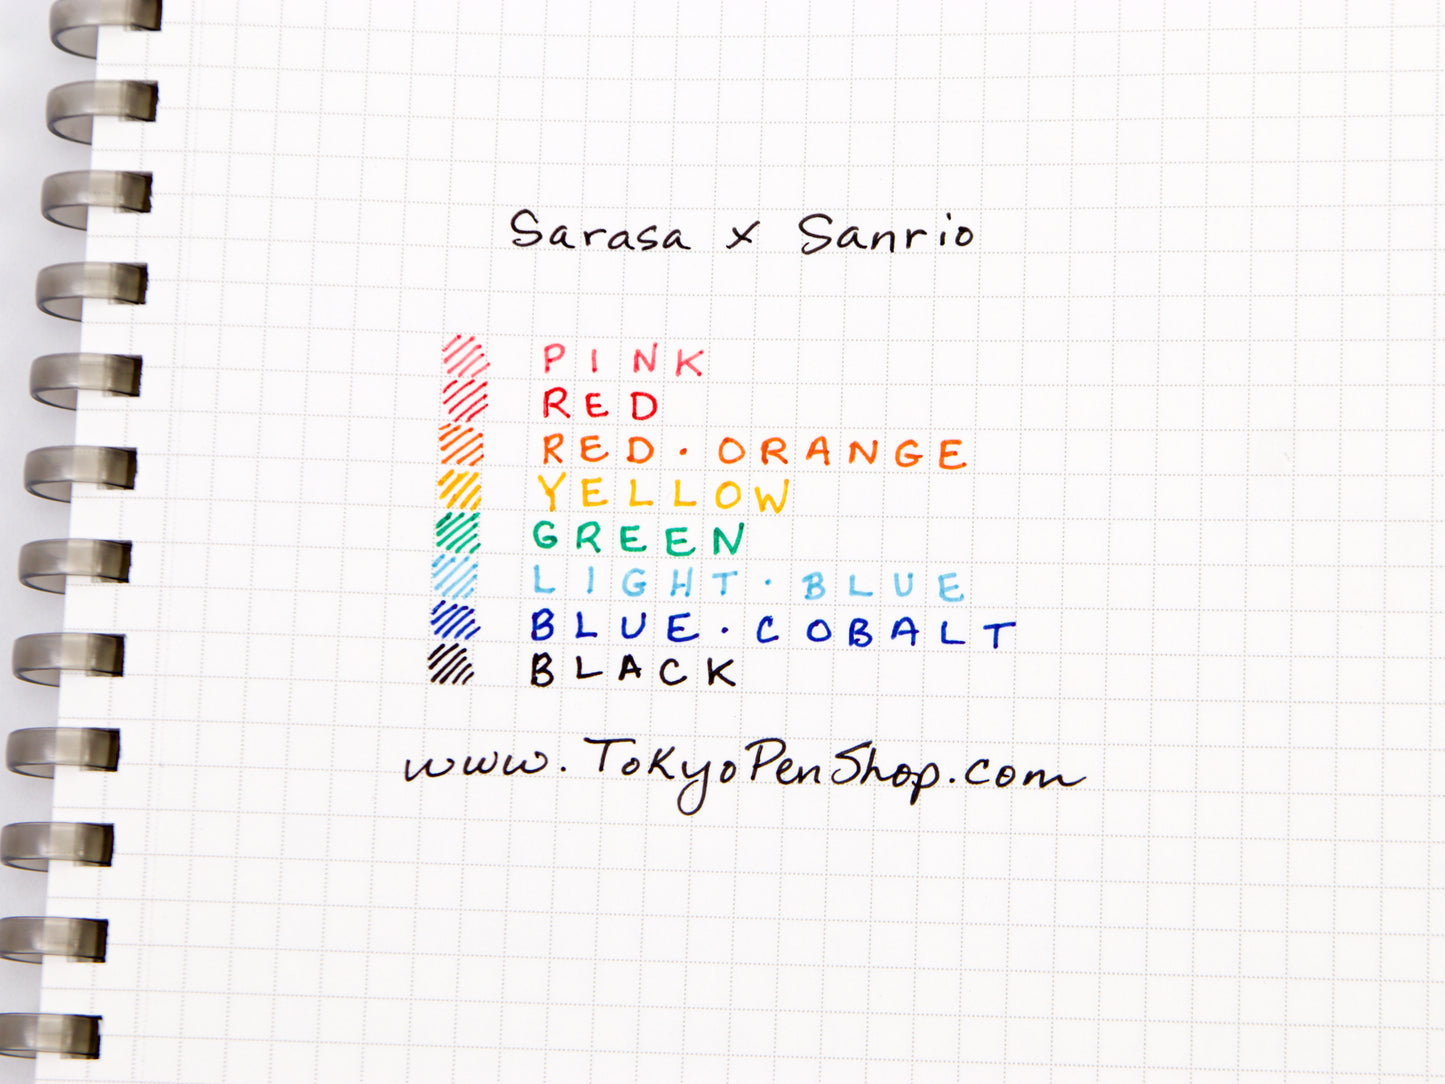 Sarasa x Sanrio
PINK
RED
RED·ORANGE
YELLOW
GREEN
LIGHT·BLUE
BLUE·COBALT
BLACK
www.TokyoPenShop.com